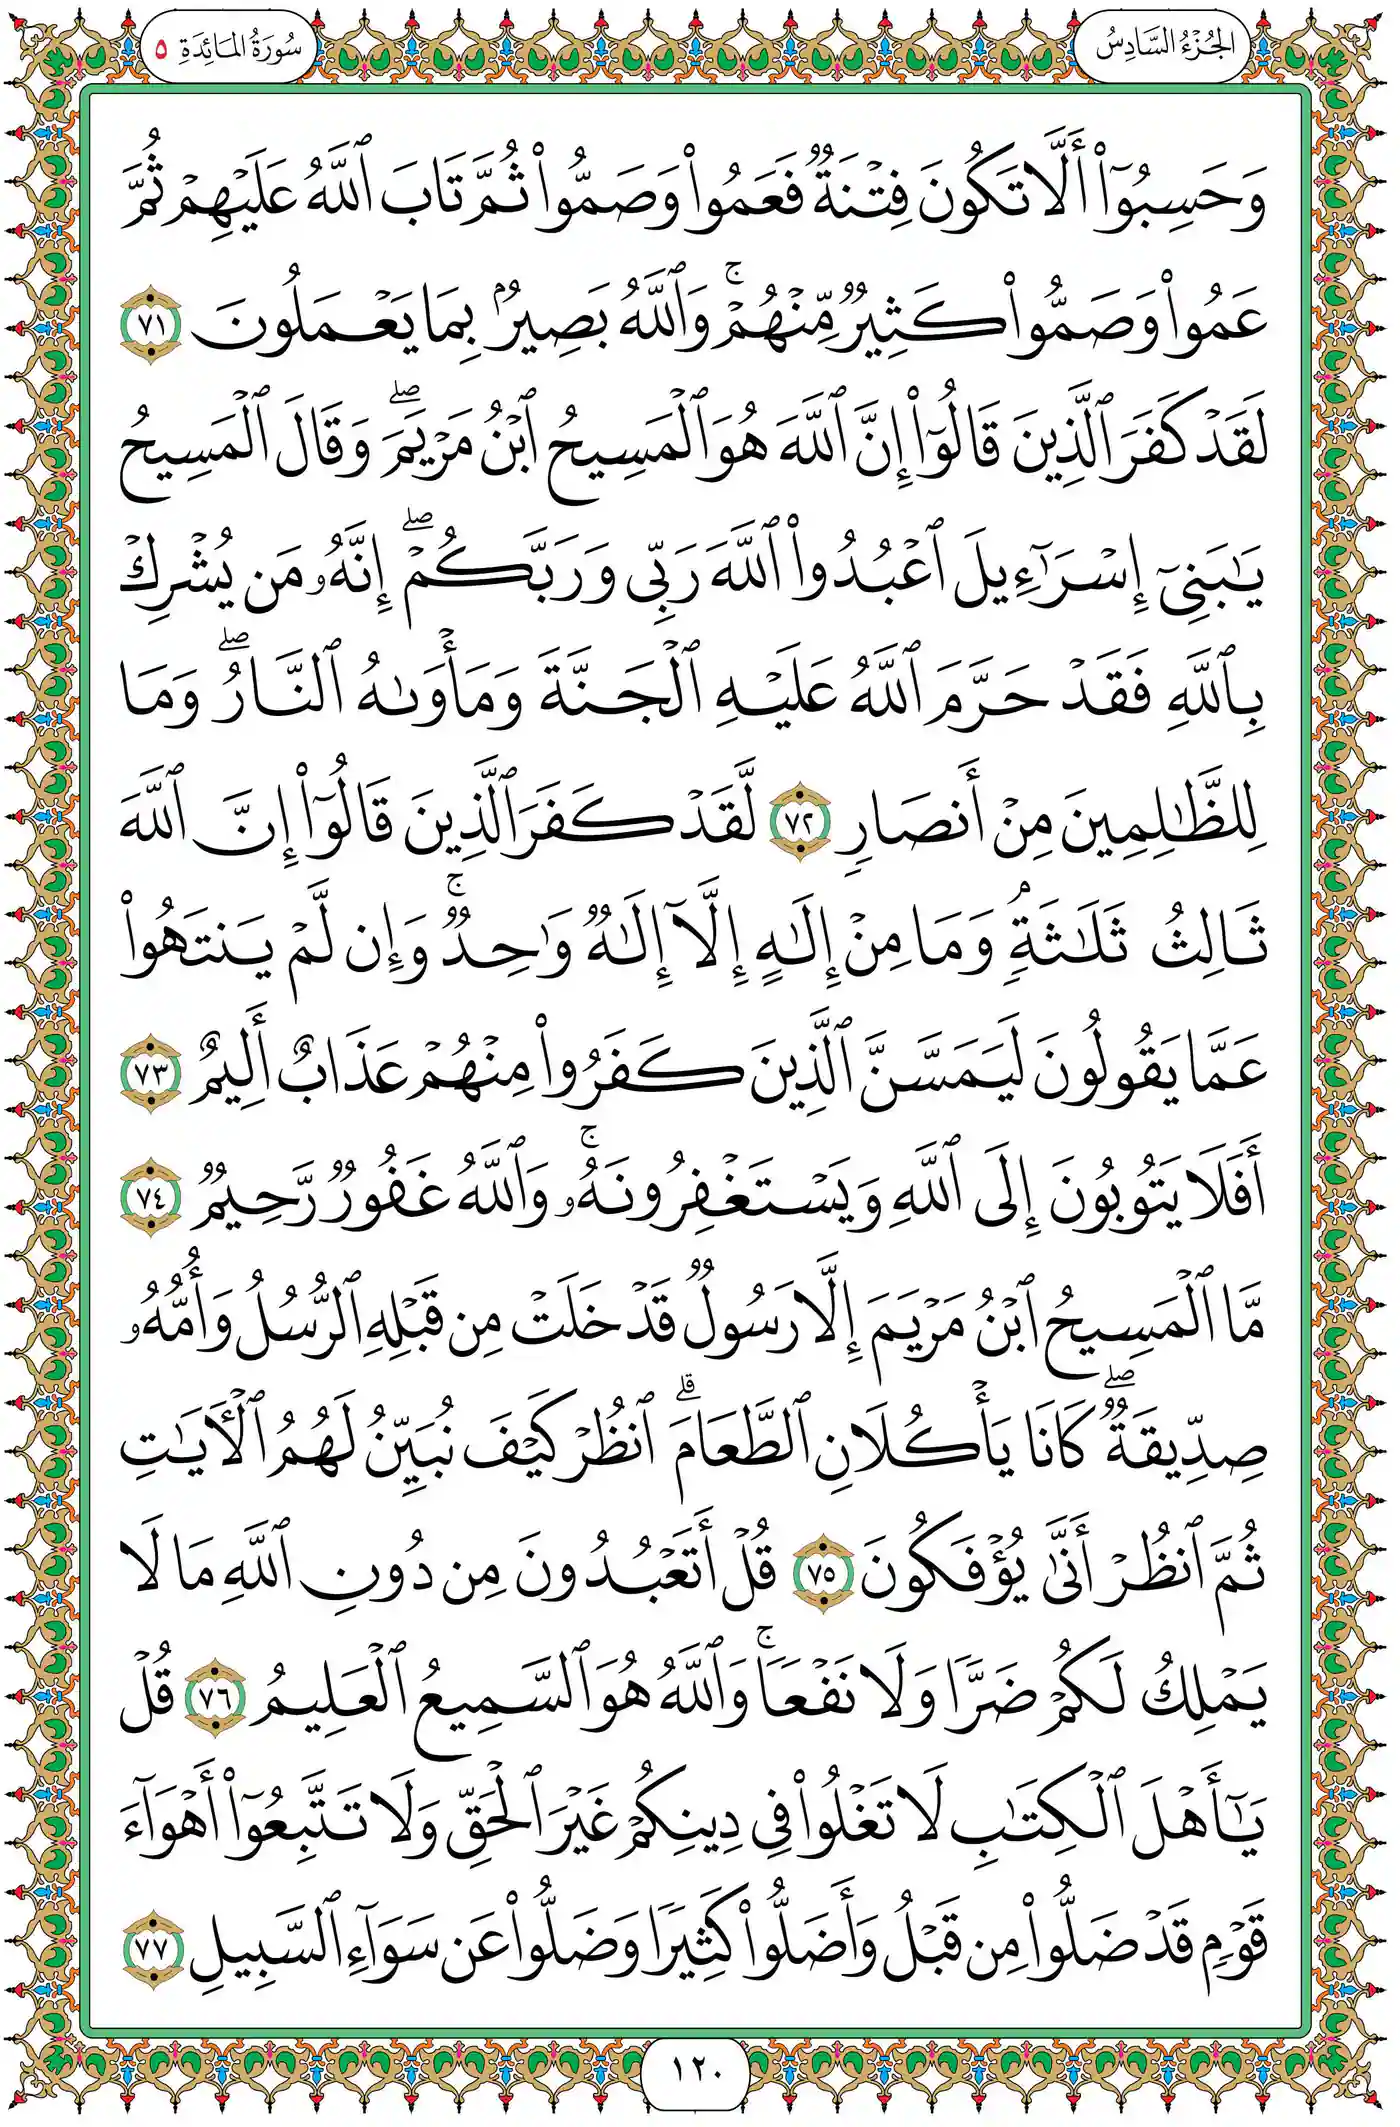 الجُزْءُ السَّادِسُ
سُورَةُ المَائِدَةِ ٥
وَحَسِبُوٓا۟ أَلَّا تَكُونَ فِتْنَةٌ فَعَمُوا۟ وَصَمُّوا۟ ثُمَّ تَابَ ٱللَّهُ عَلَيْهِمْ ثُمَّ
عَمُوا۟ وَصَمُّوا۟ كَثِيرٌ مِّنْهُمْ ۚ وَٱللَّهُ بَصِيرٌۢ بِمَا يَعْمَلُونَ ٧١
لَقَدْ كَفَرَ ٱلَّذِينَ قَالُوٓا۟ إِنَّ ٱللَّهَ هُوَ ٱلْمَسِيحُ ٱبْنُ مَرْيَمَ ۖ وَقَالَ ٱلْمَسِيحُ
يَـٰبَنِىٓ إِسْرَٰٓءِيلَ ٱعْبُدُوا۟ ٱللَّهَ رَبِّى وَرَبَّكُمْ ۖ إِنَّهُۥ مَن يُشْرِكْ
بِٱللَّهِ فَقَدْ حَرَّمَ ٱللَّهُ عَلَيْهِ ٱلْجَنَّةَ وَمَأْوَىٰهُ ٱلنَّارُ ۖ وَمَا
لِلظَّـٰلِمِينَ مِنْ أَنصَارٍ ٧٢ لَّقَدْ كَفَرَ ٱلَّذِينَ قَالُوٓا۟ إِنَّ ٱللَّهَ
ثَالِثُ ثَلَـٰثَةٍۢ وَمَا مِنْ إِلَـٰهٍ إِلَّآ إِلَـٰهٌ وَٰحِدٌ ۚ وَإِن لَّمْ يَنتَهُوا۟
عَمَّا يَقُولُونَ لَيَمَسَّنَّ ٱلَّذِينَ كَفَرُوا۟ مِنْهُمْ عَذَابٌ أَلِيمٌ ٧٣
أَفَلَا يَتُوبُونَ إِلَى ٱللَّهِ وَيَسْتَغْفِرُونَهُۥ ۚ وَٱللَّهُ غَفُورٌ رَّحِيمٌ ٧٤
مَّا ٱلْمَسِيحُ ٱبْنُ مَرْيَمَ إِلَّا رَسُولٌ قَدْ خَلَتْ مِن قَبْلِهِ ٱلرُّسُلُ وَأُمُّهُۥ
صِدِّيقَةٌ ۖ كَانَا يَأْكُلَانِ ٱلطَّعَامَ ۗ ٱنظُرْ كَيْفَ نُبَيِّنُ لَهُمُ ٱلْـَٔايَـٰتِ
ثُمَّ ٱنظُرْ أَنَّىٰ يُؤْفَكُونَ ٧٥ قُلْ أَتَعْبُدُونَ مِن دُونِ ٱللَّهِ مَا لَا
يَمْلِكُ لَكُمْ ضَرًّا وَلَا نَفْعًا ۚ وَٱللَّهُ هُوَ ٱلسَّمِيعُ ٱلْعَلِيمُ ٧٦ قُلْ
يَـٰٓأَهْلَ ٱلْكِتَـٰبِ لَا تَغْلُوا۟ فِى دِينِكُمْ غَيْرَ ٱلْحَقِّ وَلَا تَتَّبِعُوٓا۟ أَهْوَآءَ
قَوْمٍ قَدْ ضَلُّوا۟ مِن قَبْلُ وَأَضَلُّوا۟ كَثِيرًا وَضَلُّوا۟ عَن سَوَآءِ ٱلسَّبِيلِ ٧٧
١٢٠